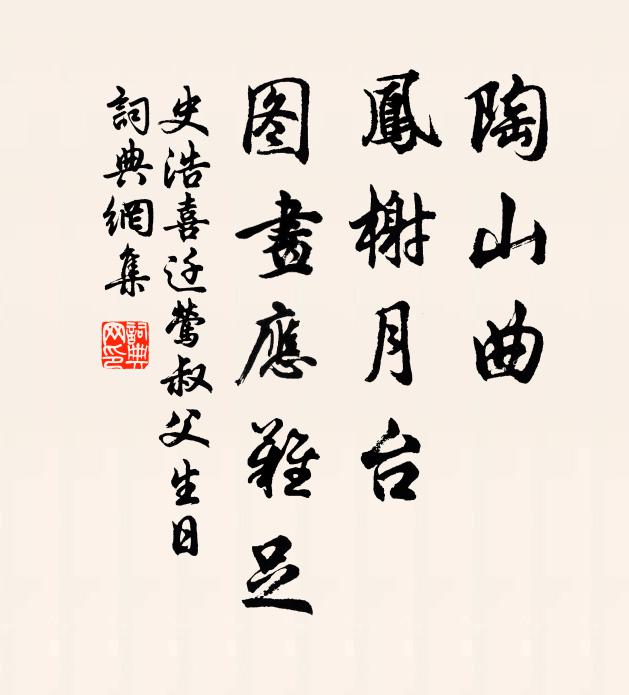 陶山曲
鳳榭月台
图畫應難足
史浩喜迁鶯叔父生日
詞典網集
詞典网印